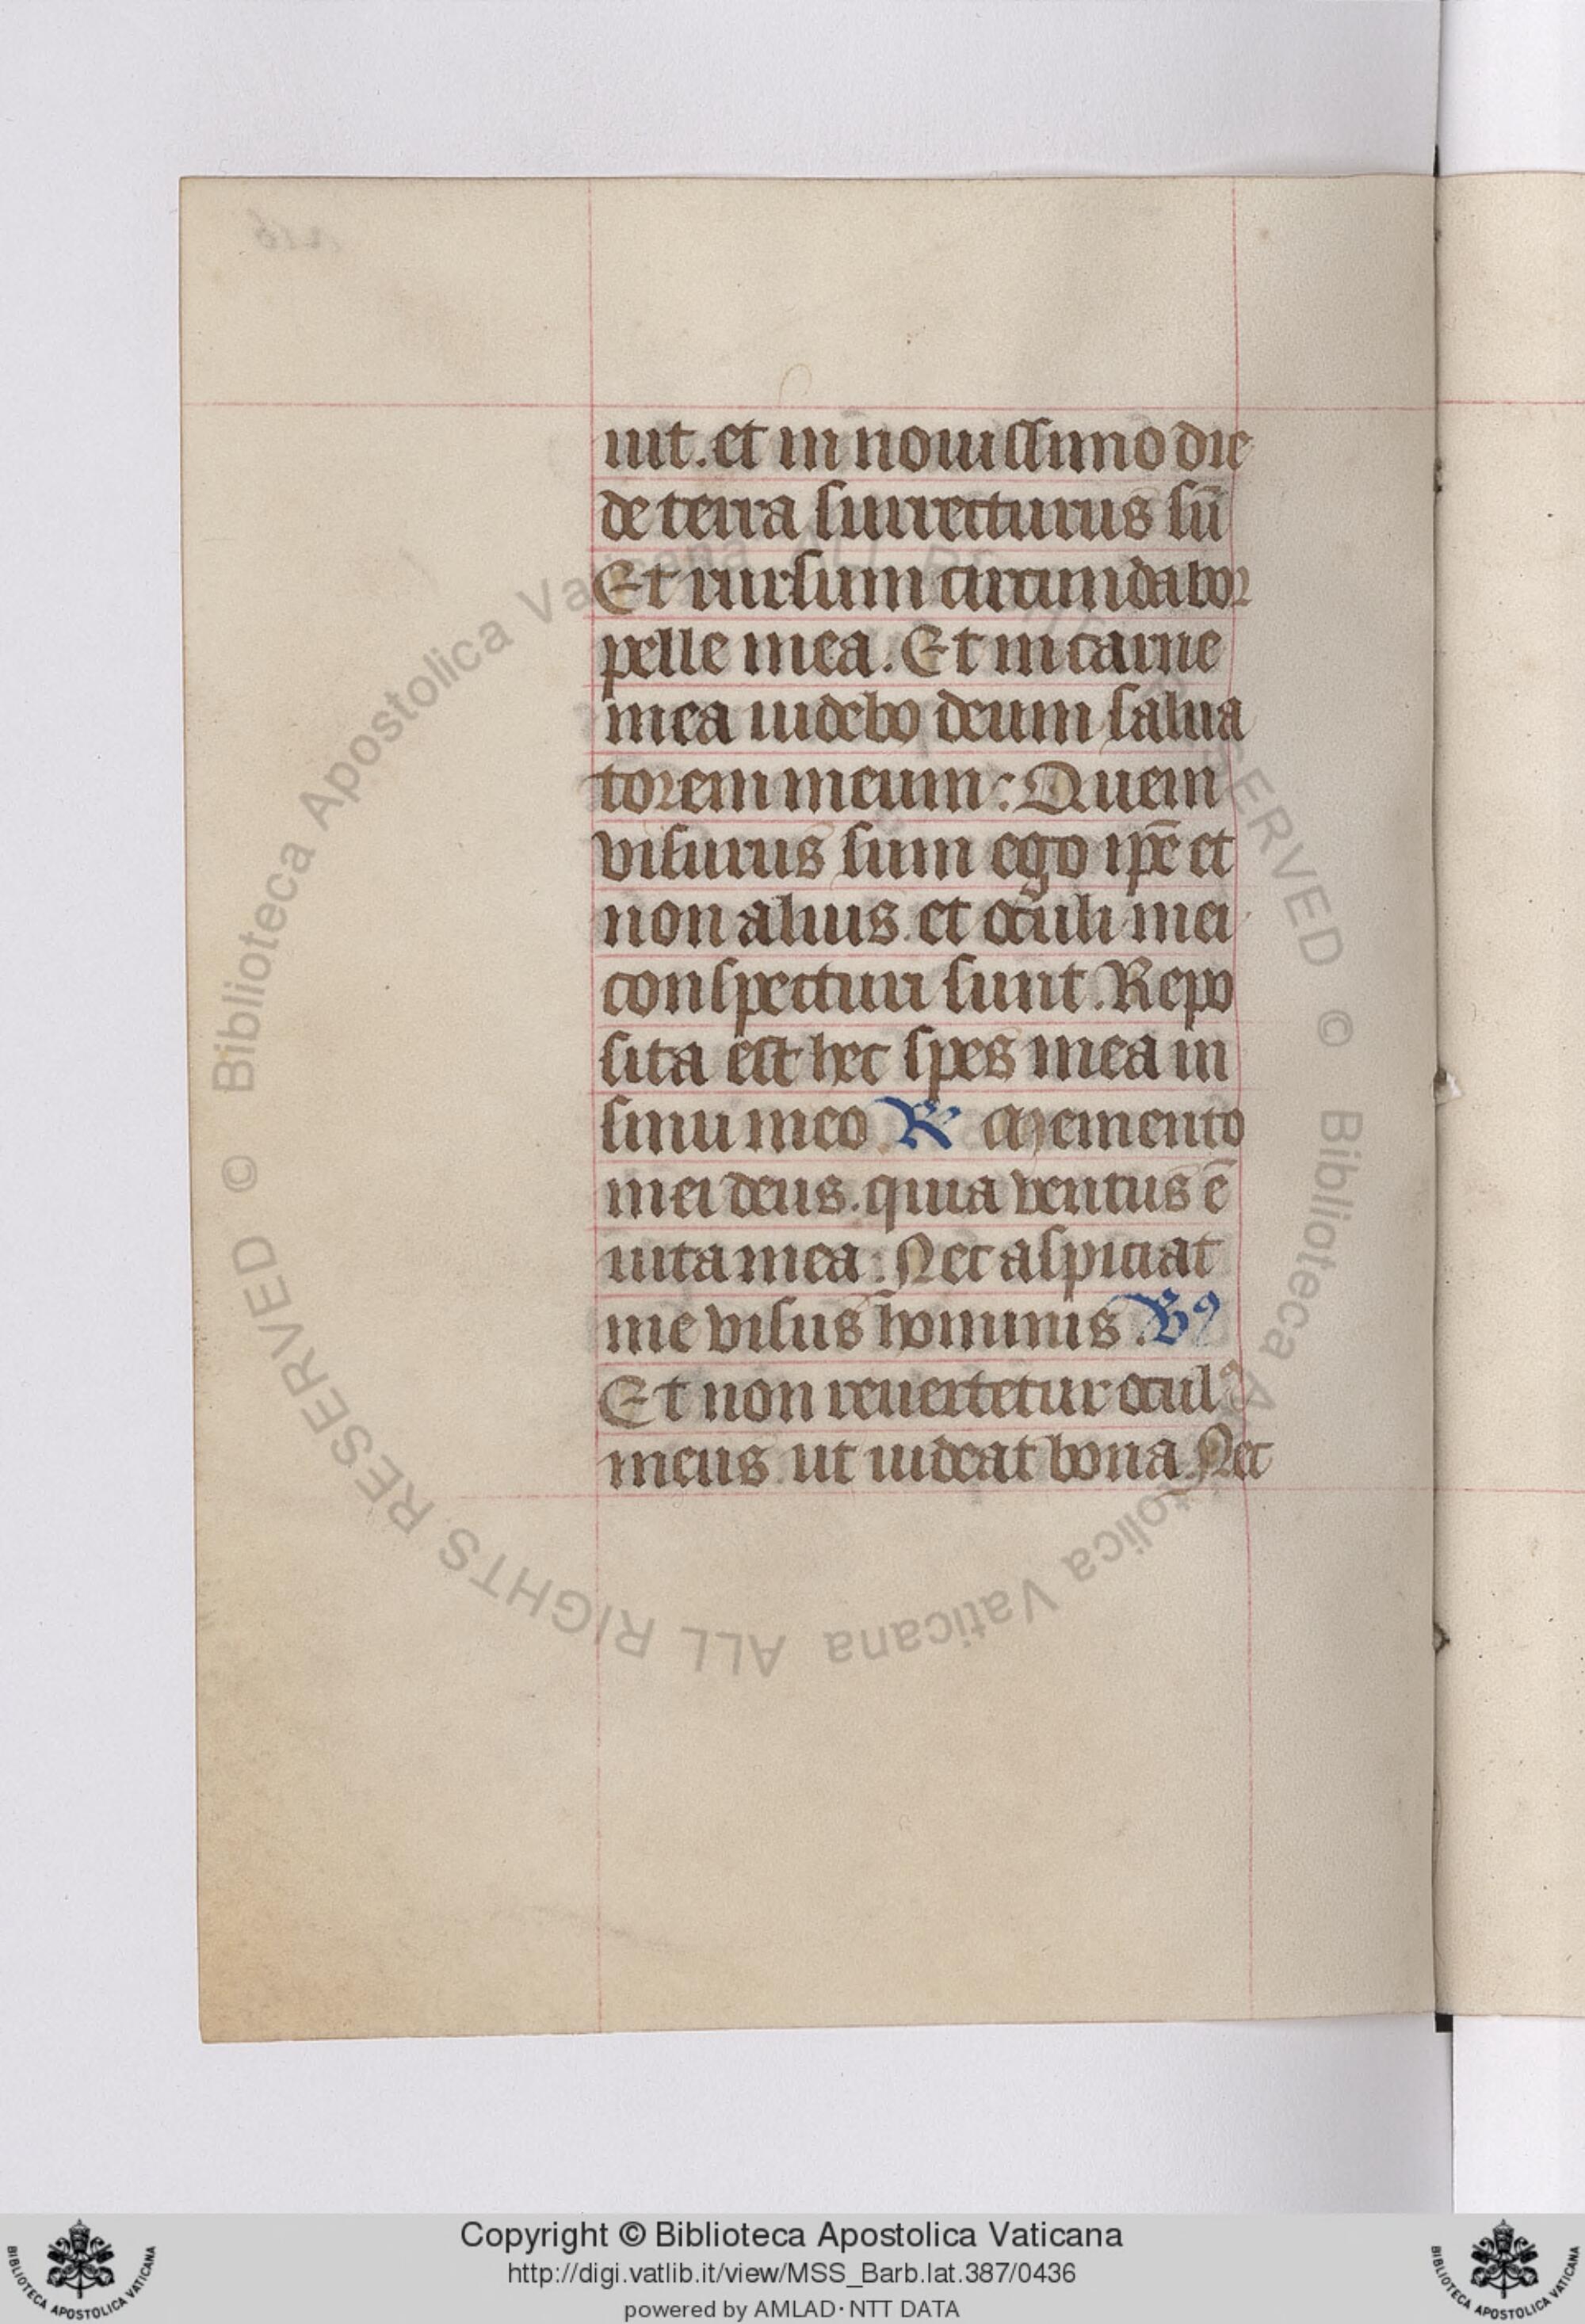 uit. et in nouissimo die
de terra surrecturus sū
Et rursum circumdabor
pelle mea. Et in carne
mea uidebo deum salua
torem meum: Quem
visurus sum ego ip̄e et
non alius. et oculi mei
conspecturi sunt. Repo
sita est hec spes mea in
sinu meo. R Memento
mei deus. quia ventus ē
uita mea: Nec aspiciat
me visus hominis. Vꝰ
Et non reuertetur oculꝰ
meus. ut uideat bona. Nec
© Biblioteca Apostolica Vaticana ALL RIGHTS RESERVED © Biblioteca Apostolica Vaticana ALL RIGHTS RESERVED
Copyright © Biblioteca Apostolica Vaticana
http://digi.vatlib.it/view/MSS_Barb.lat.387/0436
powered by AMLAD·NTT DATA
BIBLIOTECA APOSTOLICA VATICANA
BIBLIOTECA APOSTOLICA VATICANA